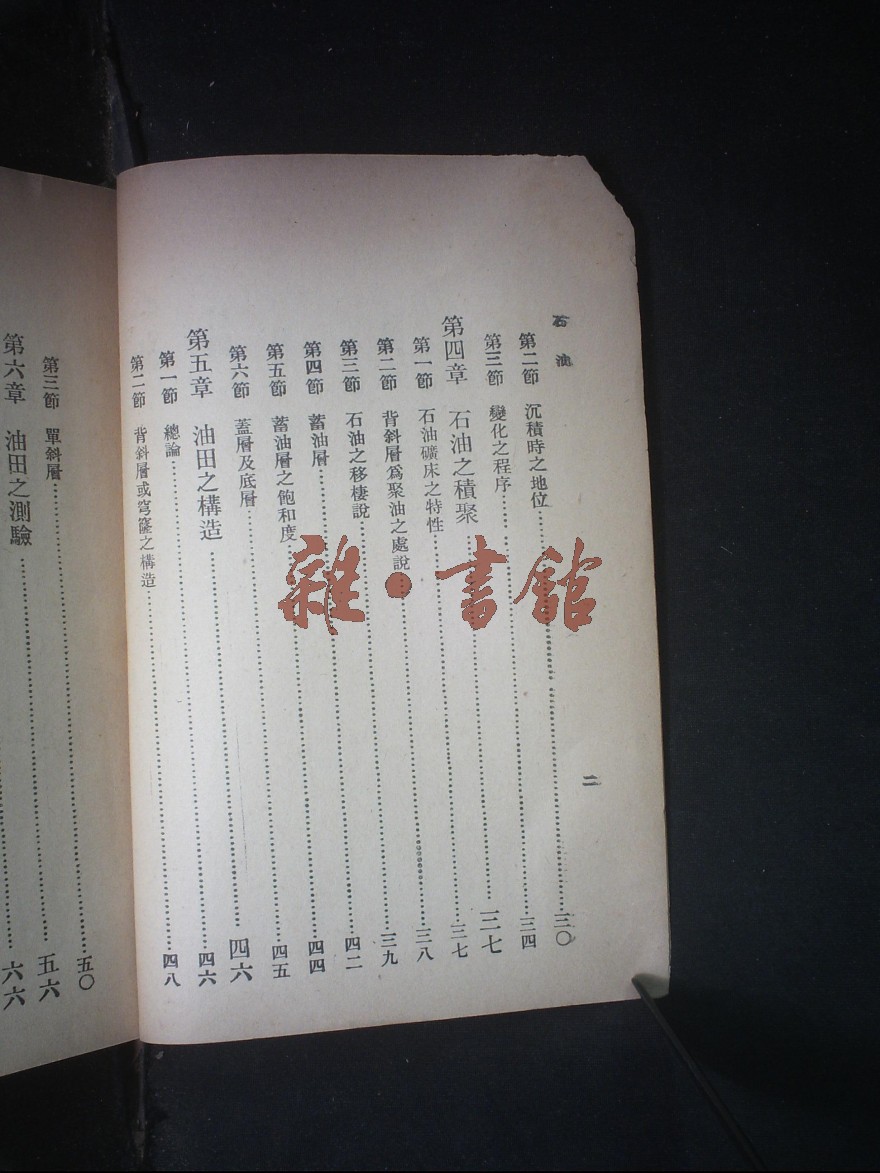 石油
二
第二節 沉積時之地位……三〇
第三節 變化之程序……三四
第四章 石油之積聚……三七
第一節 石油礦床之特性……三七
第二節 背斜層爲聚油之處說……三八
第三節 石油之移棲說……三九
第四節 蓄油層……四二
第五節 蓄油層之飽和度……四四
第六節 蓋層及底層……四五
第五章 油田之構造……四六
第一節 總論……四六
第二節 背斜層或穹窿之構造……四八
第三節 單斜層……五〇
第六章 油田之測驗……五六
六六
雜·書館